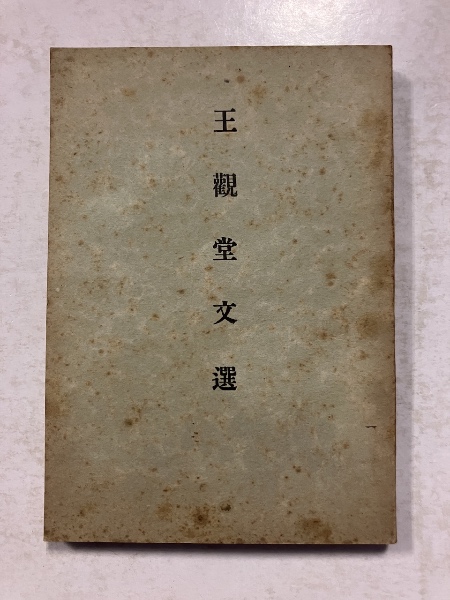 王觀堂文選